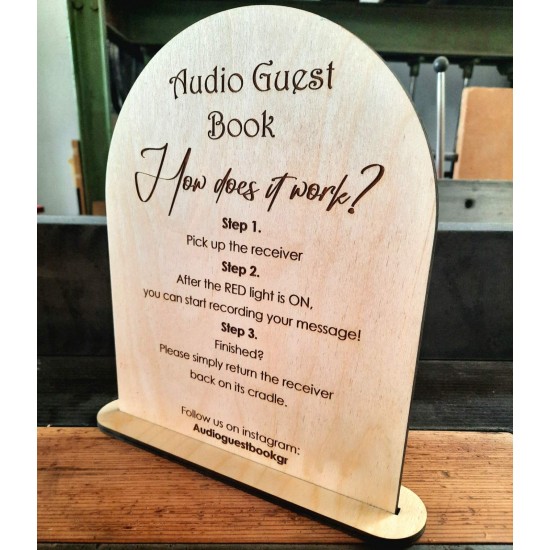 Audio Guest
Book
How does it work?
Step 1.
Pick up the receiver
Step 2.
After the RED light is ON,
you can start recording your message!
Step 3.
Finished?
Please simply return the receiver
back on its cradle.
Follow us on instagram:
Audioguestbookgr